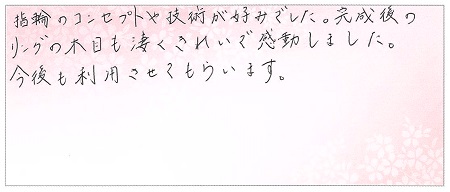 指輪のコンセプトや技術が好みでした。完成後の
リングの木目も凄くきれいで感動しました。
今後も利用させてもらいます。